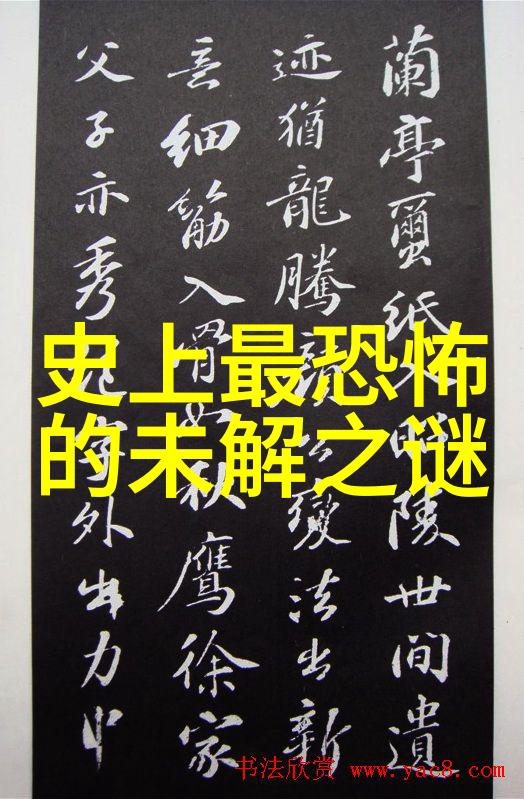 史上最恐怖
的未解之谜
蘭亭蠒紙入昭陵世間遺
迹猶龍騰顔公變法出新
意細筋入骨如秋鷹徐家
父子亦秀字外出力中
书法欣赏 www.yac8.com